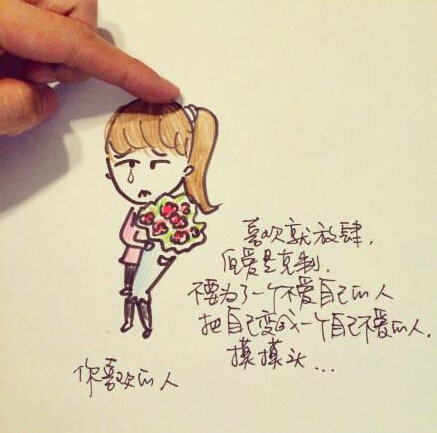 喜欢就放肆，
但爱是克制，
不要为了一个不爱自己的人
把自己变成一个自己不爱的人，
摸摸头...
你喜欢的人